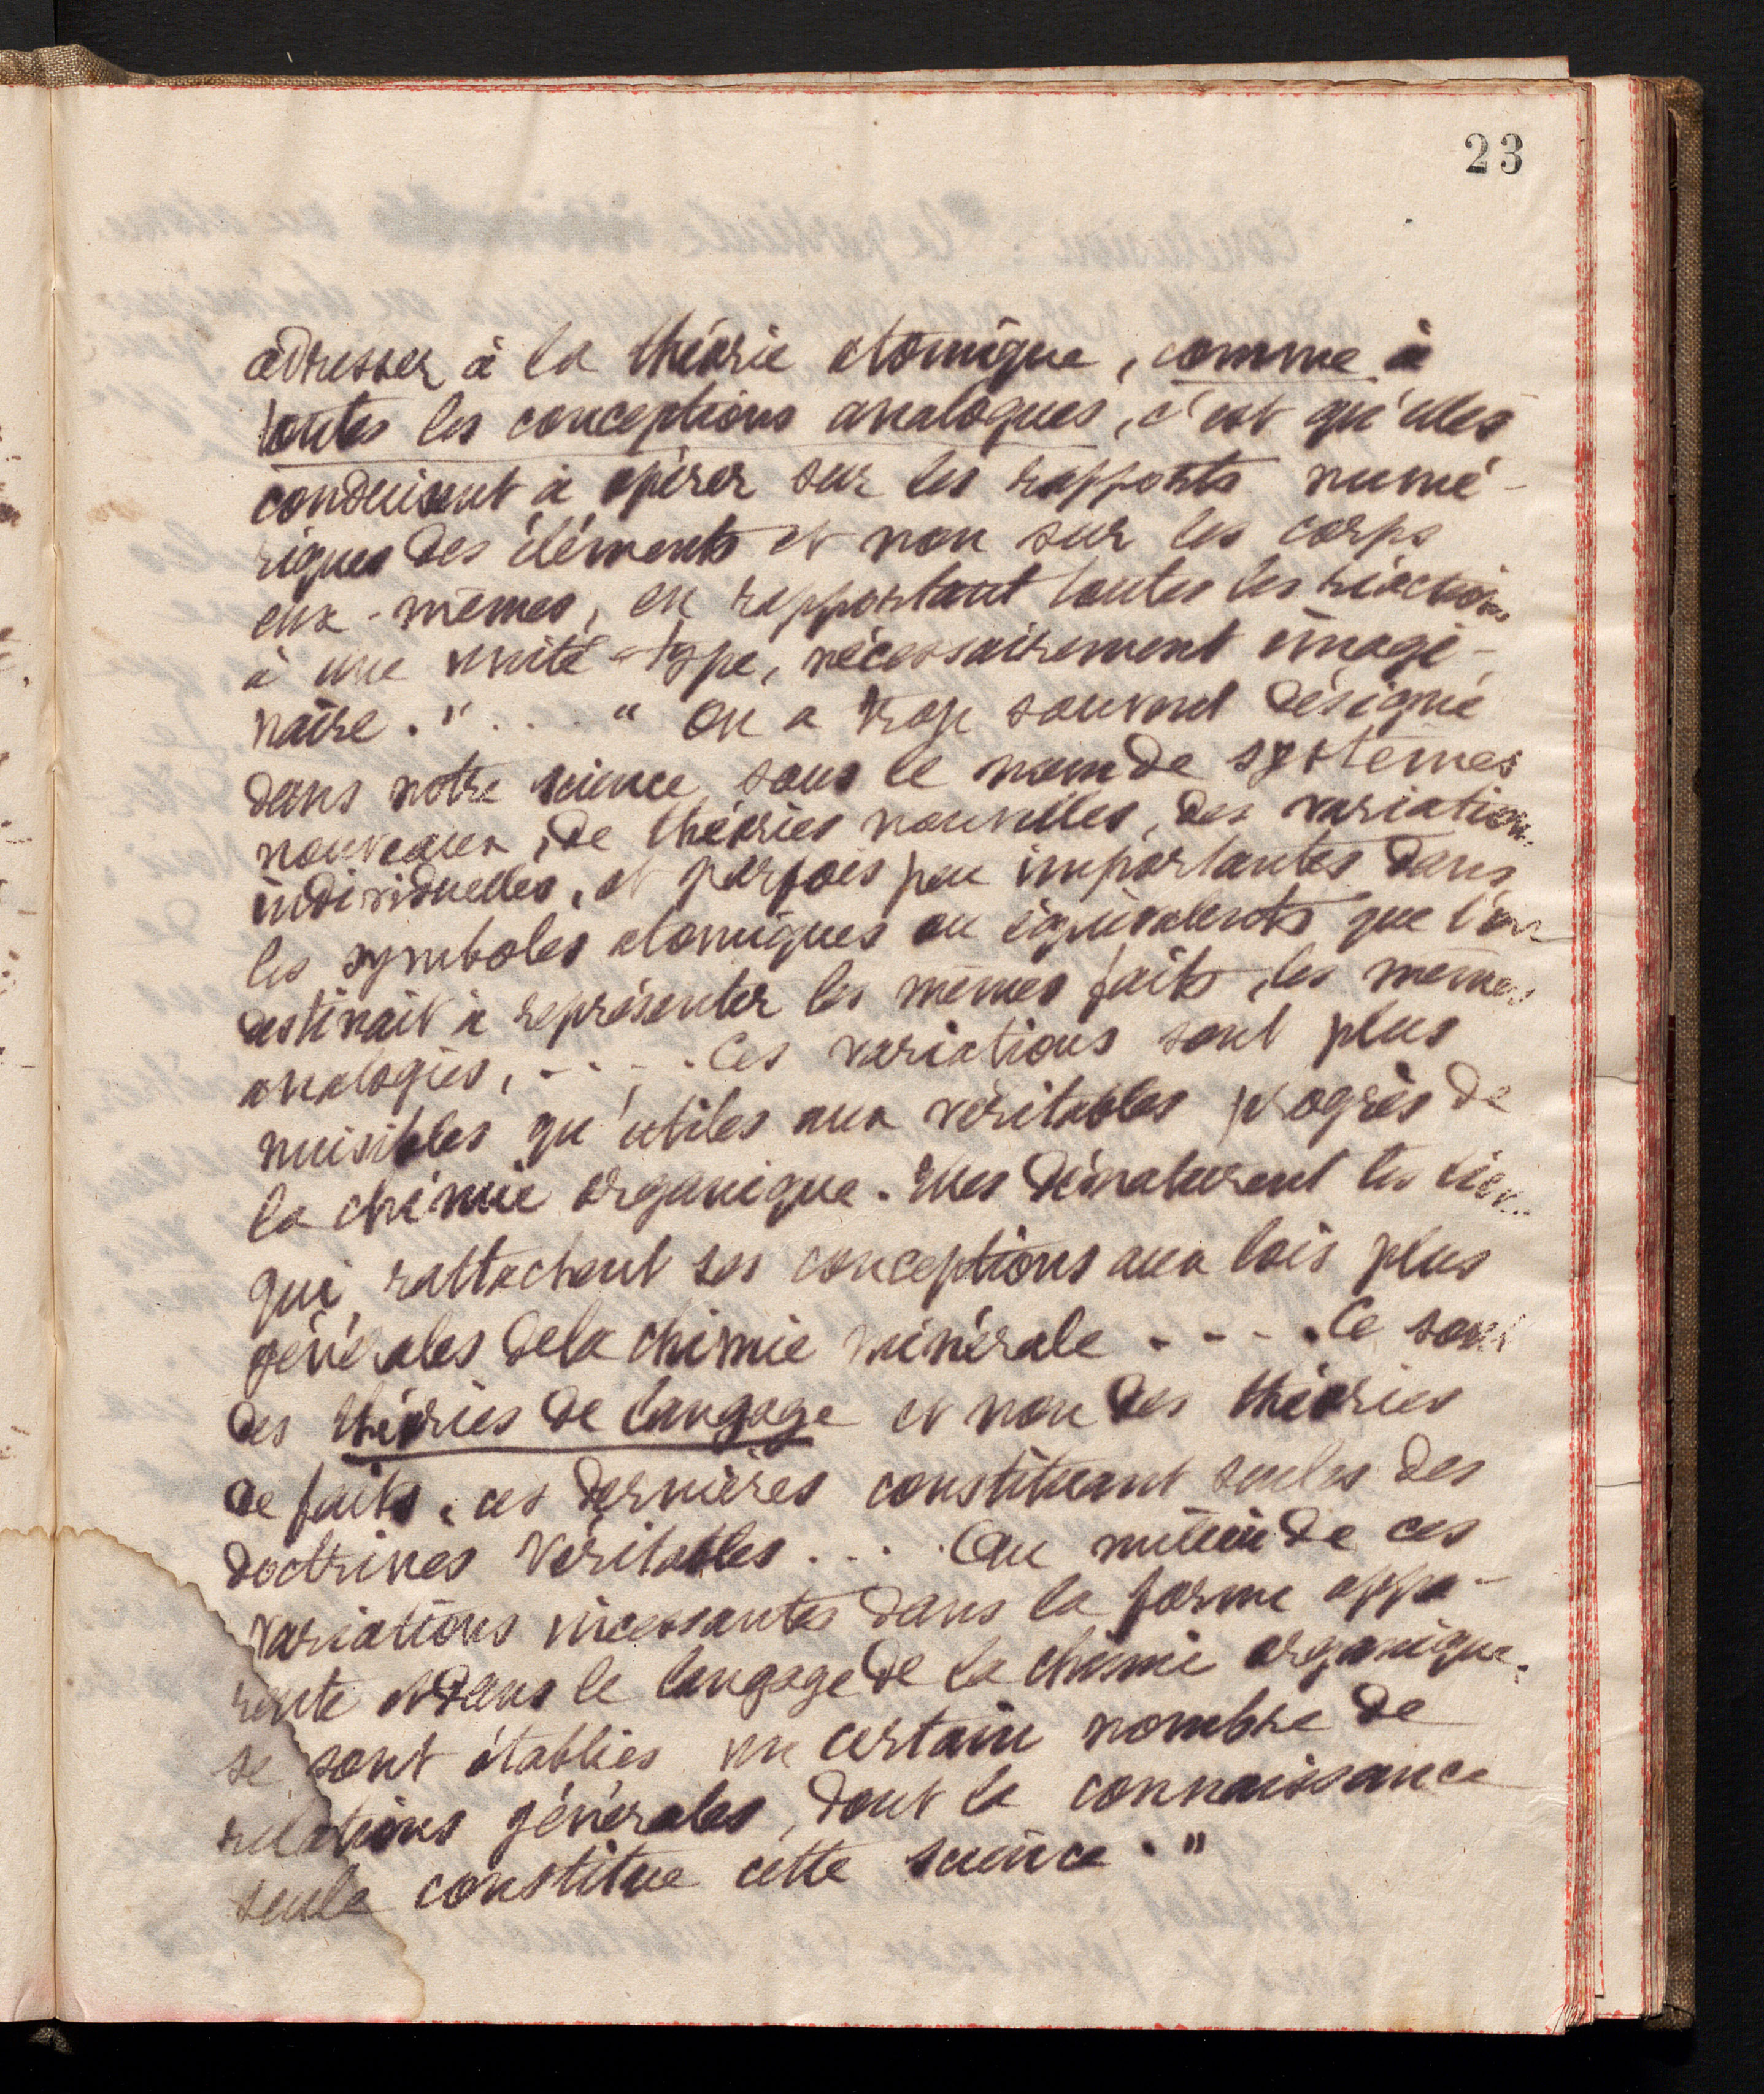 23
adresser à la théorie atomique, comme à
toutes les conceptions analogues, c'est qu'elles
conduisent à opérer sur les rapports numé-
riques des éléments et non sur les corps
eux-mêmes, en rapportant toutes les réactions
à une unité-type, nécessairement imagi-
naire." .... " On a trop souvent désigné
dans notre science sous le nom de systèmes
nouveaux, de théories nouvelles, des variations
individuelles, et parfois peu importantes dans
les symboles atomiques ou équivalents que l'on
destinait à représenter les mêmes faits, les mêmes
analogies, ..... Ces variations sont plus
nuisibles qu'utiles aux véritables progrès de
la chimie organique. Elles dénaturent les liens
qui rattachent ses conceptions aux lois plus
générales de la chimie minérale .... Ce sont
des théories de langage et non des théories
de faits, ces dernières constituant seules des
doctrines véritables .... Au milieu de ces
variations incessantes dans la forme appa-
rente et dans le langage de la chimie organique,
se sont établies un certain nombre de
relations générales, dont la connaissance
seule constitue cette science."